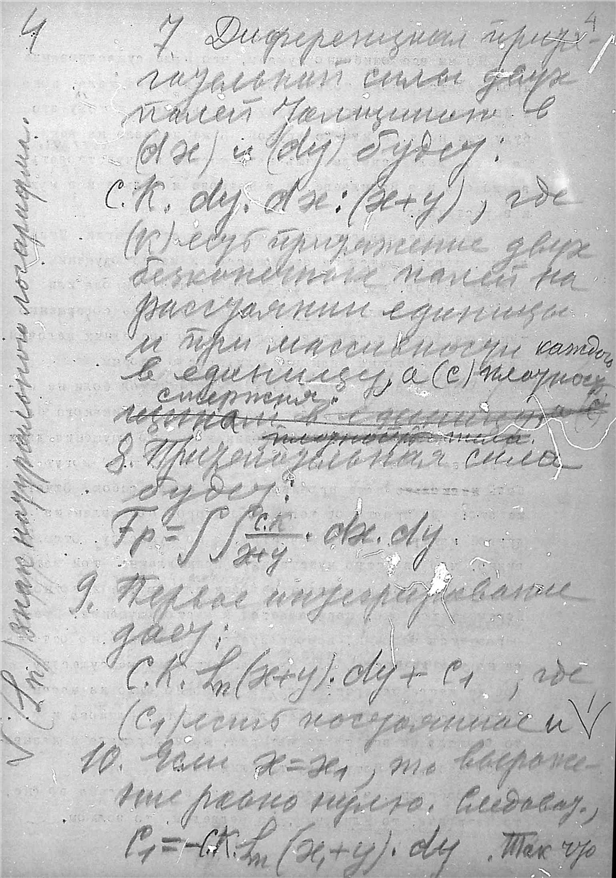 4
4
7 Диференциал притя-
гательной силы двух
палей толщиною в
(dx) и (dy) будет:
С.К. dy. dx : (x+y), где
(К) есть притяжение двух
безконечных палей на
расстоянии единицы
и при массивности каждой
в единицу, а (с) плотность
стержня.
8. Притягательная сила
будет:
Fp = ∫∫ с.к/x+y . dx. dy
9. Первое интегрирование
дает:
С.К. Ln (x+y). dy + C1, где
(C1) есть постоянное и √
10. Если x=x1, то выраже-
ние равно нулю. Следоват.,
C1 = -С.К. Ln (x1+y). dy . Так что
√ (Ln) знак натурального логарифма.